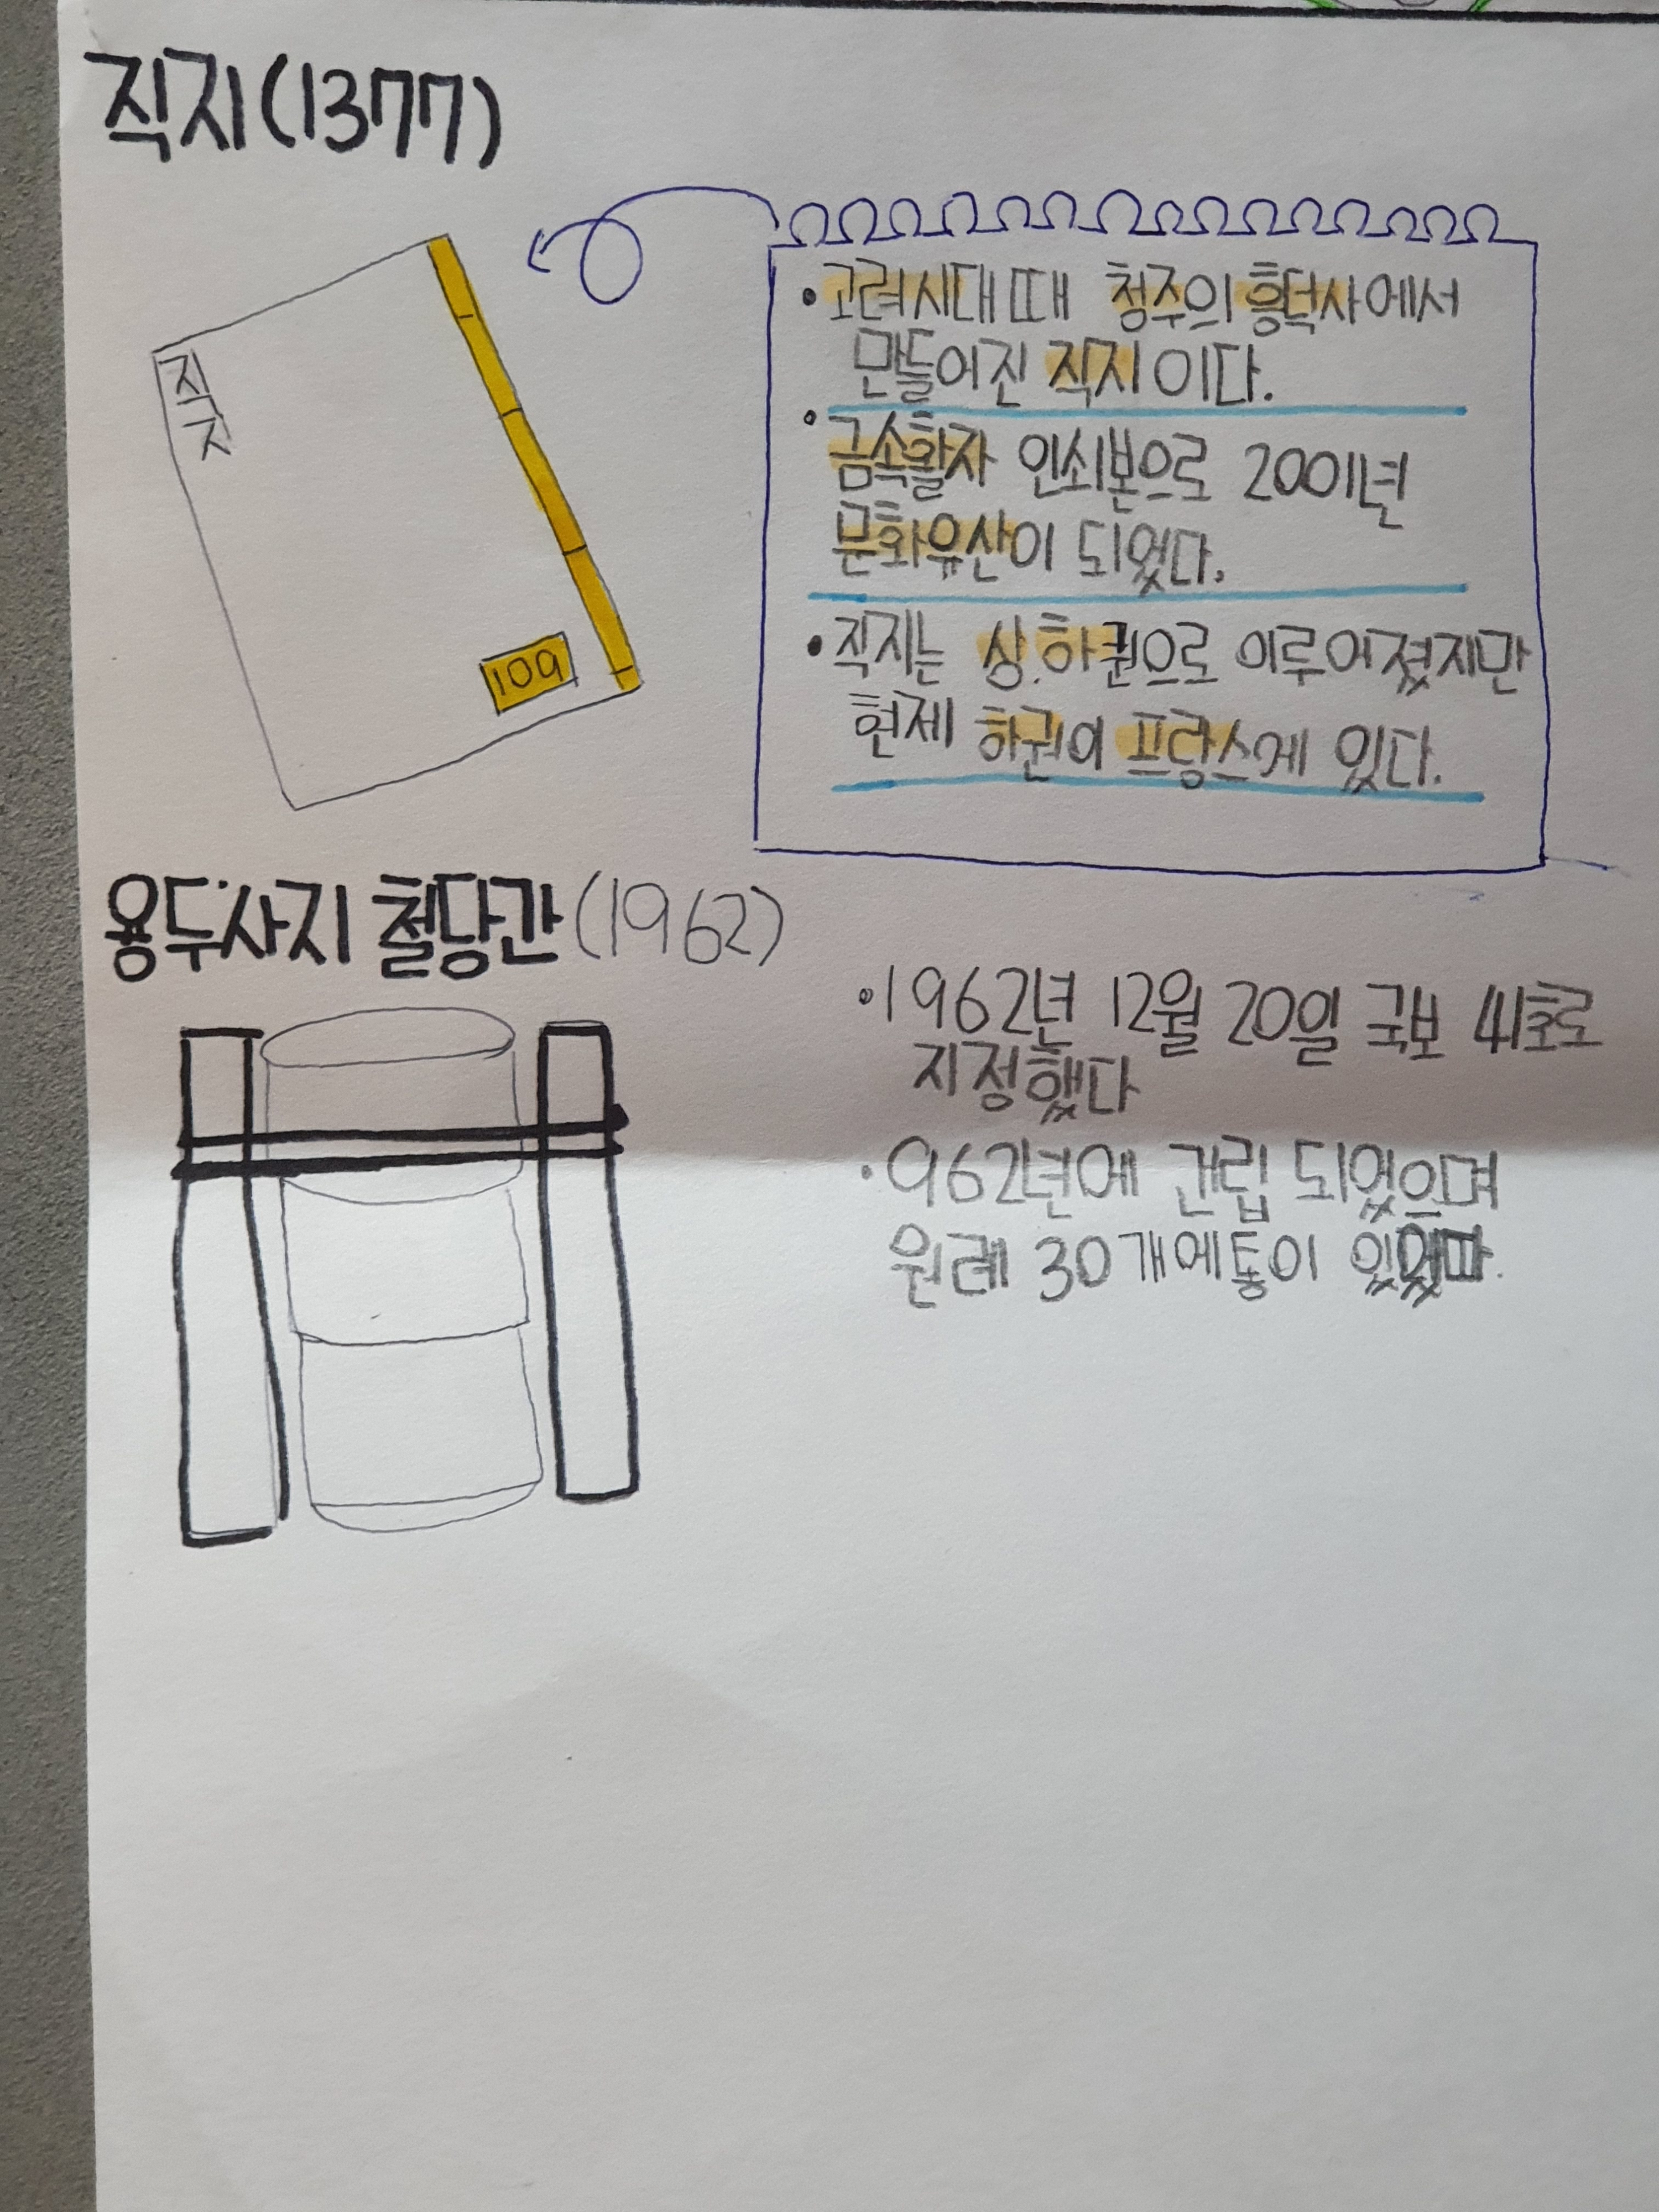 직지(1377)
직지
109
• 고려시대 때 청주의 흥덕사에서
만들어진 직지이다.
• 금속활자 인쇄본으로 2001년
문화유산이 되었다.
• 직지는 상.하권으로 이루어졌지만
현제 하권이 프랑스에 있다.
용두사지 철당간(1962)
• 1962년 12월 20일 국보 41호로
지정했다
• 962년에 건립 되었으며
원레 30개에 통이